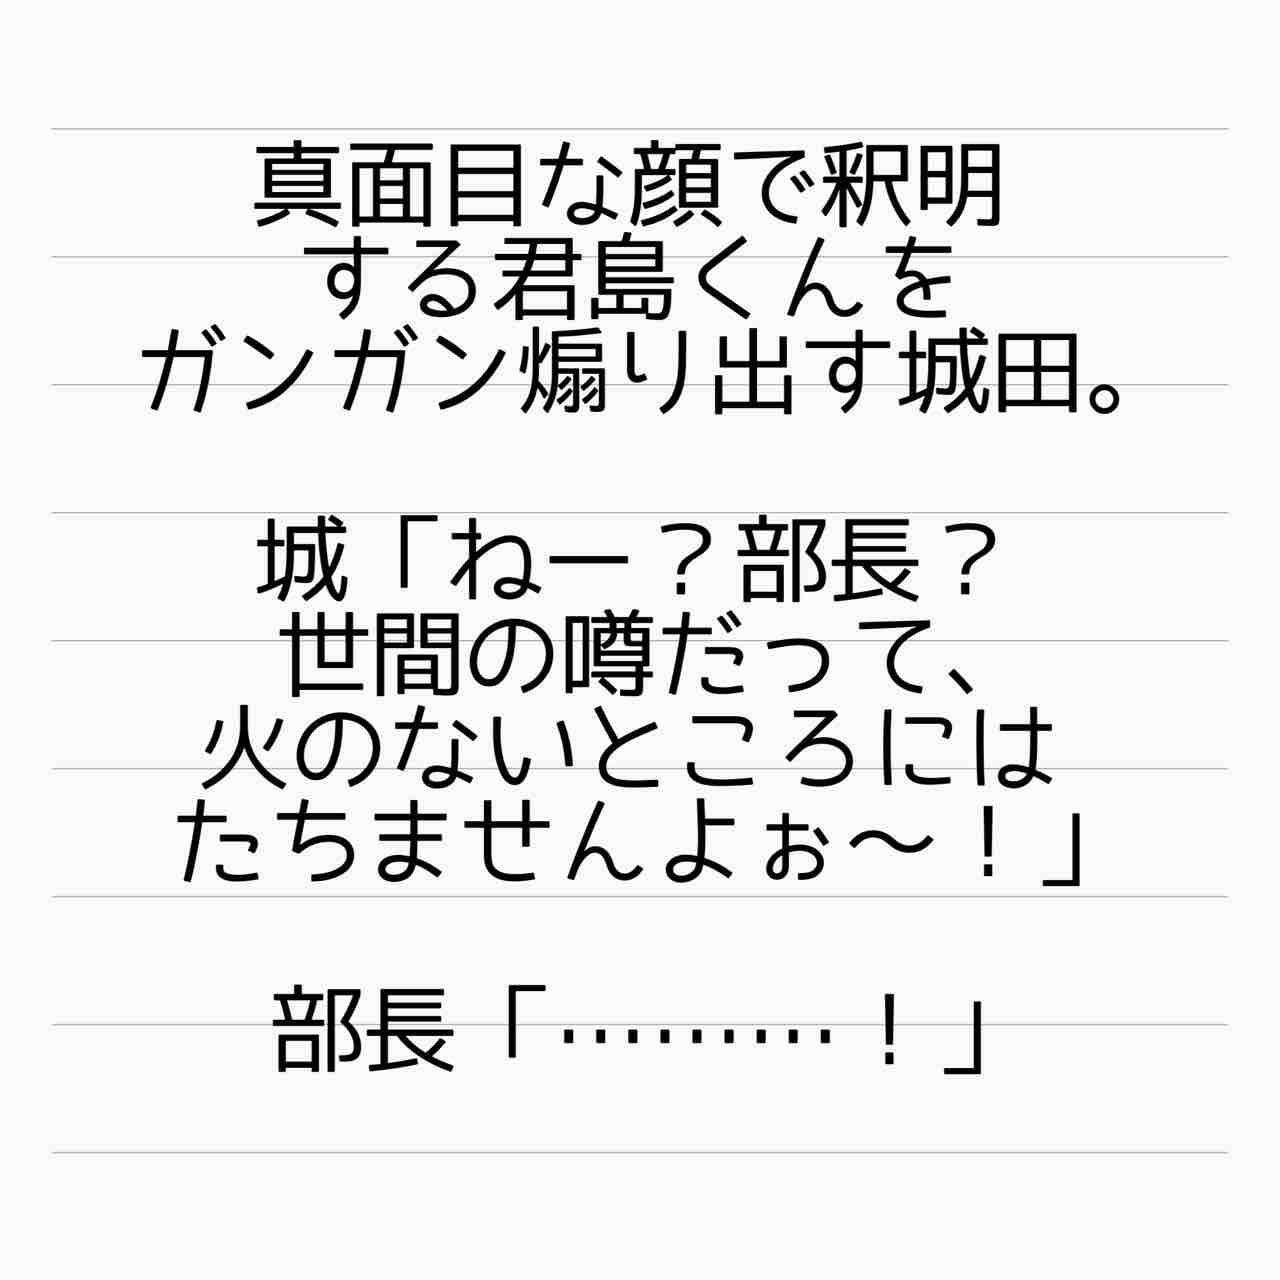 真面目な顔で釈明
する君島くんを
ガンガン煽り出す城田。
城「ねー？部長？
世間の噂だって、
火のないところには
たちませんよぉ〜！」
部長「………！」